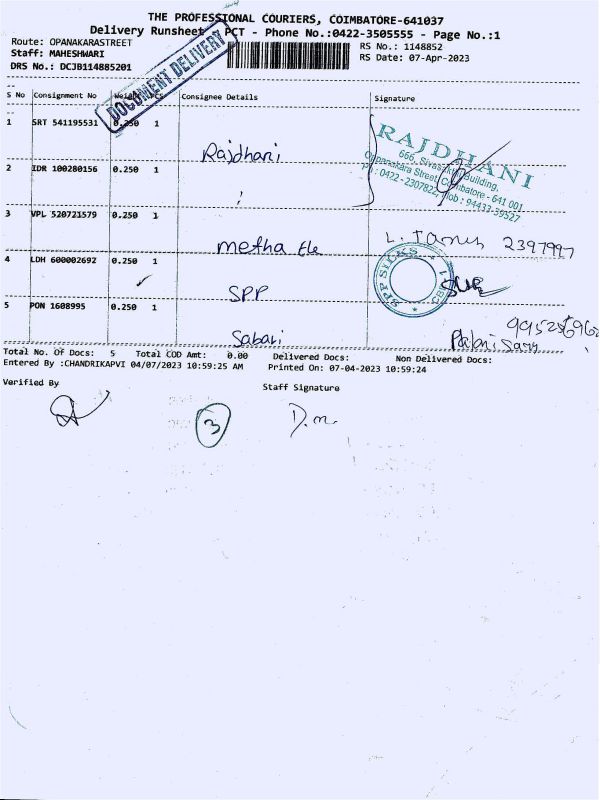 THE PROFESSIONAL COURIERS, COIMBATORE-641037
Delivery Runsheet PCT - Phone No.:0422-3505555 - Page No.:1
Route: OPANAKARASTREET
RS No.: 1148852
Staff: MAHESHWARI
RS Date: 07-Apr-2023
DRS No.: DCJB114885201
DOCUMENT DELIVERY
S No Consignment No Weight PCS Consignee Details Signature
1 SRT 541195531 0.250 1 Rajdhani
RAJDHANI
666, Sivasakthi Building,
Oppanakara Street, Coimbatore - 641 001
Ph : 0422 - 2307822, Mob : 94433-39527
2 IDR 100280156 0.250 1
3 VPL 520721579 0.250 1 metha Ele 2397997
4 LDH 600002692 0.250 1 SPP
SPP SILKS
5 PON 1608995 0.250 1 Sabari
Palani Samy
Total No. Of Docs: 5 Total COD Amt: 0.00 Delivered Docs: Non Delivered Docs:
Entered By :CHANDRIKAPVI 04/07/2023 10:59:25 AM Printed On: 07-04-2023 10:59:24
Verified By Staff Signature
3 D.m.